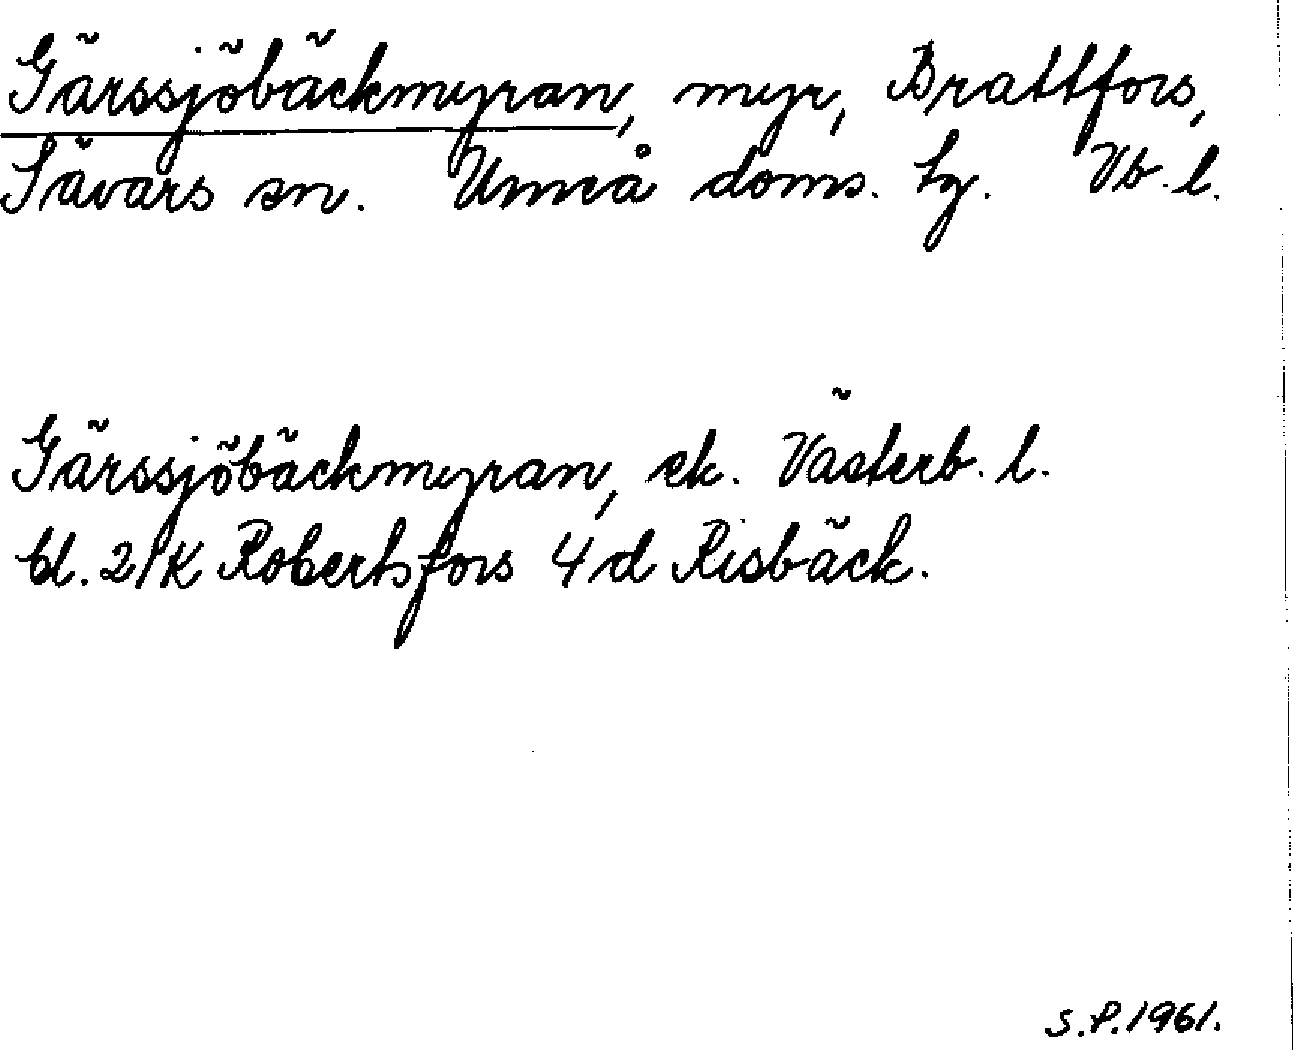 Gärssjöbäckmyran, myr, Brattfors,
Sävars sn. Umeå doms. tg. Vb. l.
Gärssjöbäckmyran, ek. Västerb. l.
bl. 21K Robertsfors 4d Risbäck.
S.P.1961.